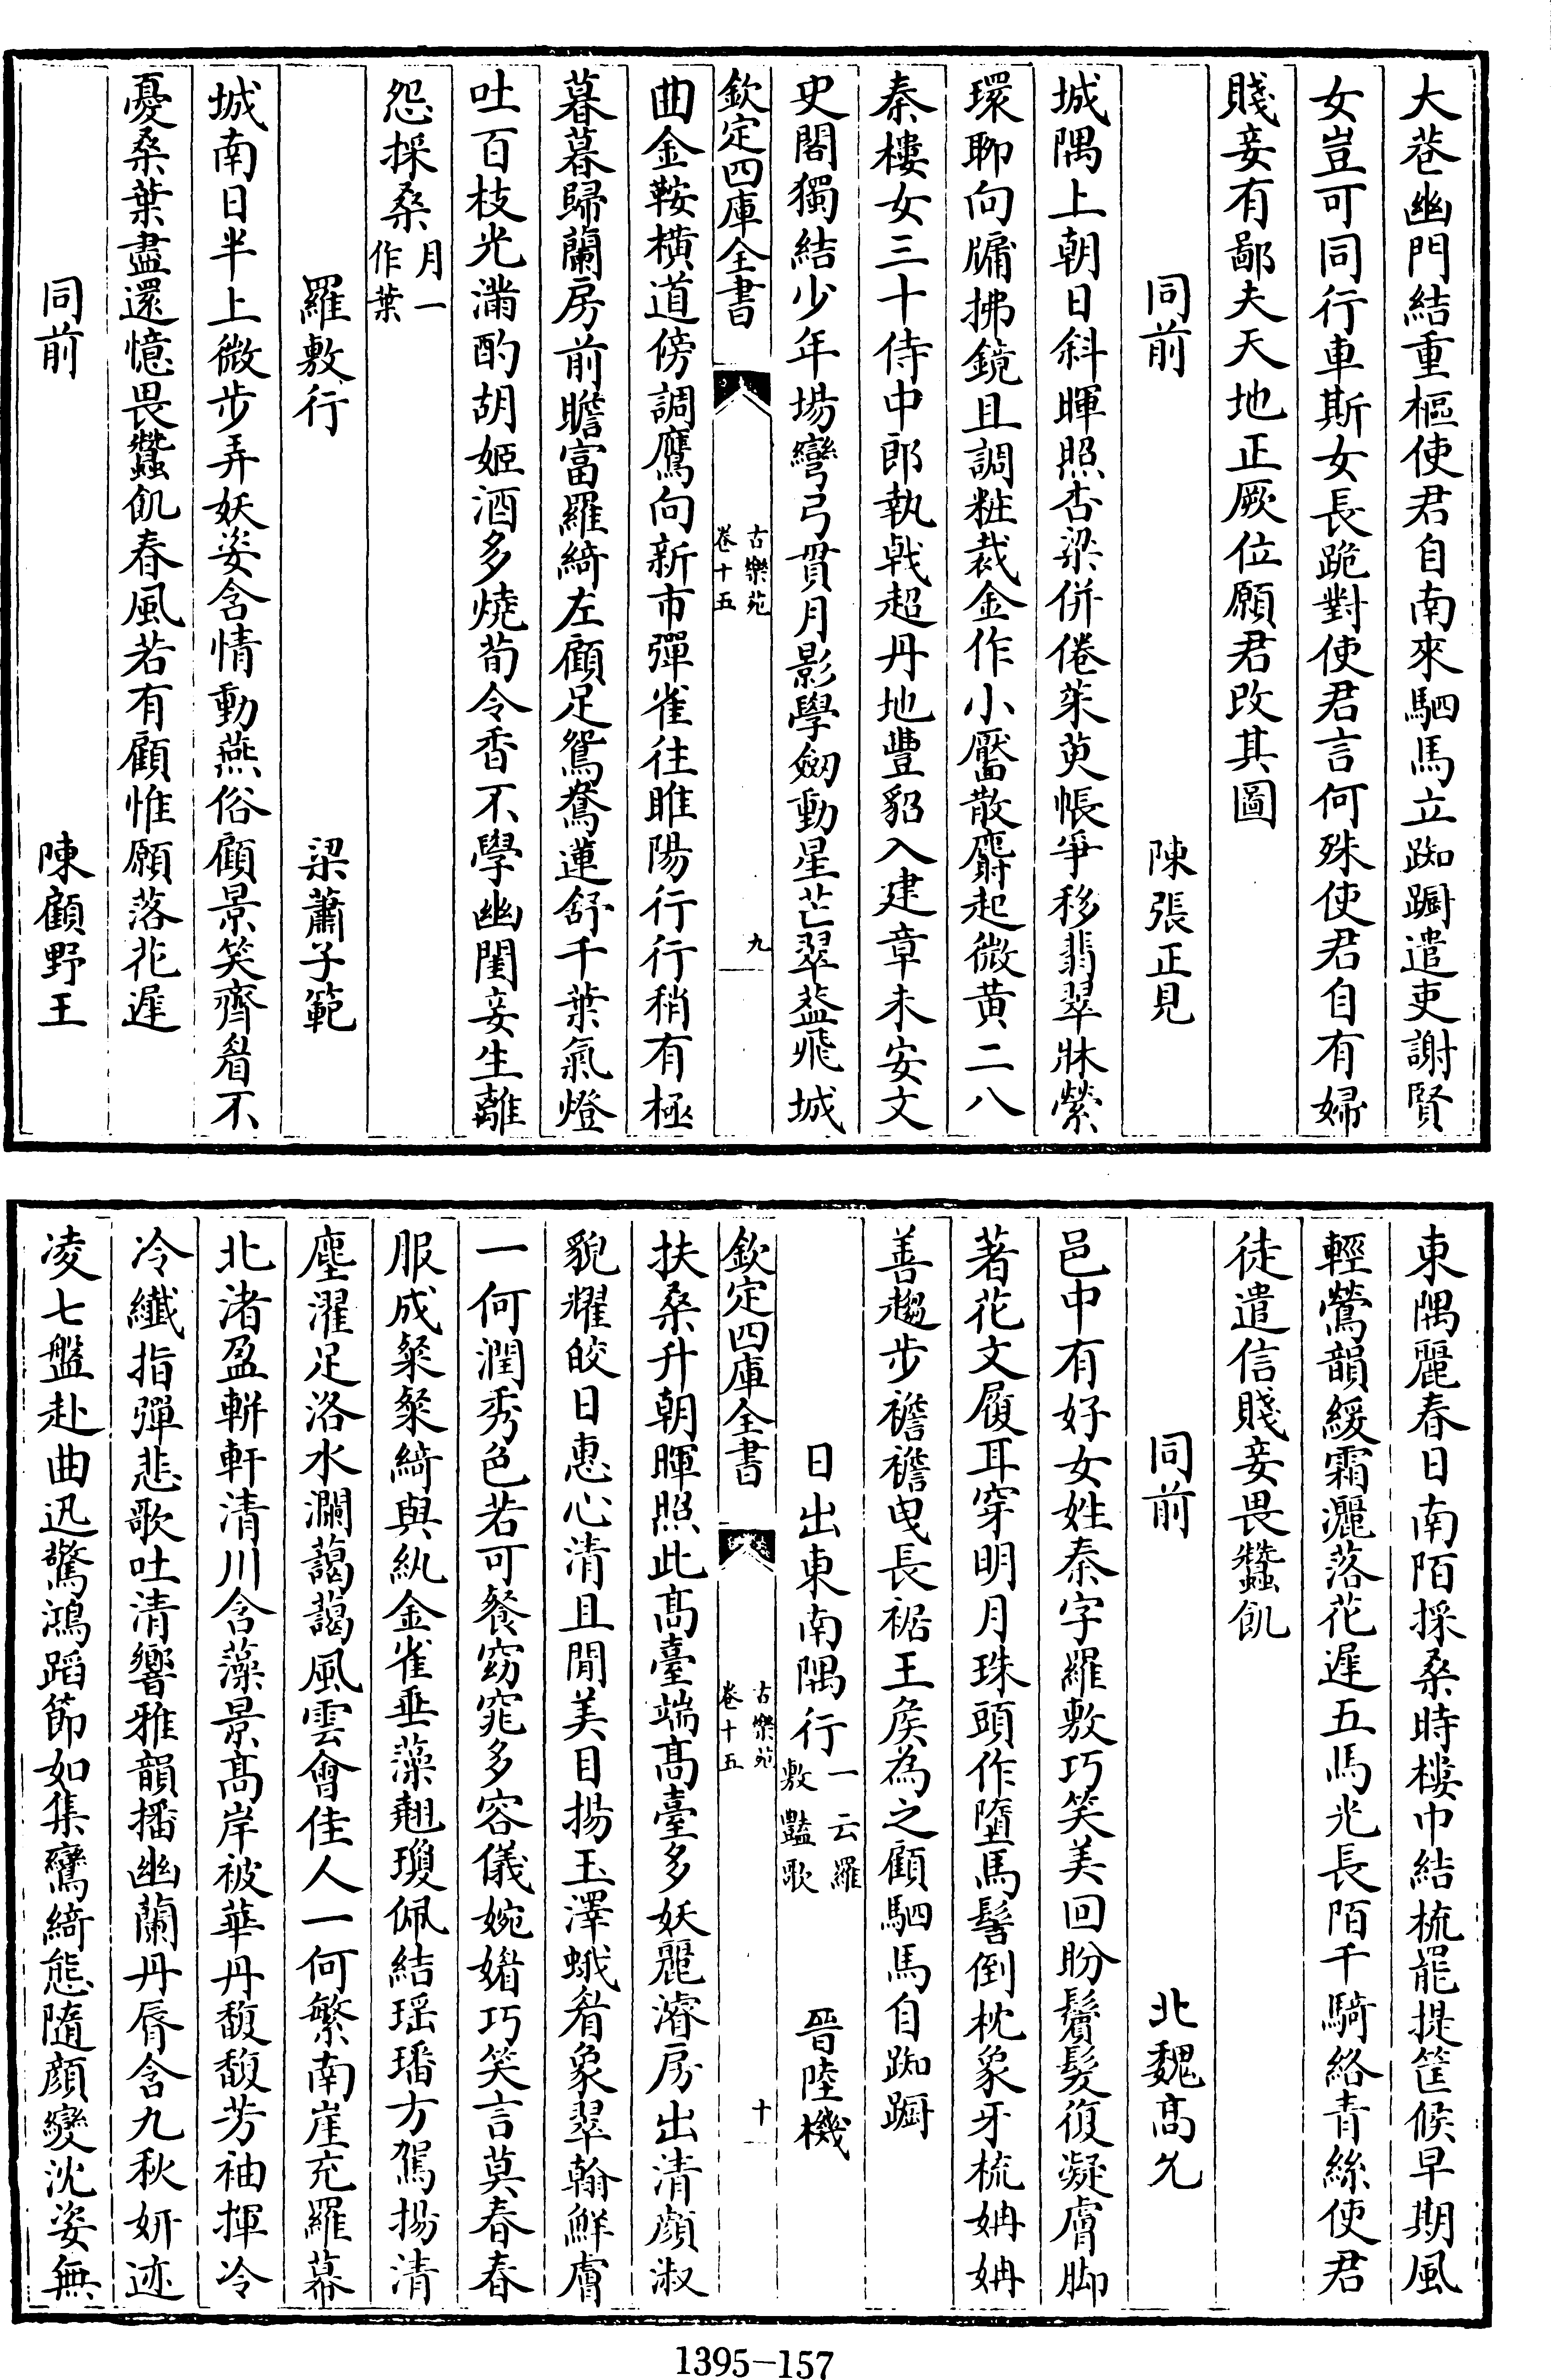 大巷幽門結重樞使君自南來駟馬立踟蹰遣吏謝賢
女豈可同行車斯女長跪對使君言何殊使君自有婦
賤妾有鄙夫天地正厥位願君改其圖
同前 陳張正見
城隅上朝日斜暉照杏梁併倦茱萸帳爭移翡翠牀縈
環聊向牖拂鏡且調粧裁金作小靨散麝起微黄二八
秦樓女三十侍中郎執戟超丹地豐貂入建章未安文
史閣獨結少年場彎弓貫月影學劔動星芒翠葢飛城
欽定四庫全書 古樂苑 卷十五 九
曲金鞍横道傍調鷹向新市彈雀往睢陽行行稍有極
暮暮歸蘭房前瞻富羅綺左顧足鴛鴦蓮舒千葉氣燈
吐百枝光滿酌胡姬酒多燒荀令香不學幽閨妾生離
怨採桑 月一作葉
羅敷行 梁蕭子範
城南日半上微步弄妖姿含情動燕俗顧景笑齊眉不
憂桑葉盡還憶畏蠶飢春風若有顧惟願落花遲
同前 陳顧野王
東隅麗春日南陌採桑時樓中結梳罷提筐候早期風
輕鶯韻緩霜灑落花遲五馬光長陌千騎絡青絲使君
徒遣信賤妾畏蠶飢
同前 北魏髙允
邑中有好女姓秦字羅敷巧笑美回盼鬢髮復凝膚脚
著花文履耳穿明月珠頭作墮馬髻倒枕象牙梳姌姌
善趨步襜襜曳長裾王侯為之顧駟馬自踟蹰
日出東南隅行 一云羅敷豔歌 晉陸機
欽定四庫全書 古樂苑 卷十五 十
扶桑升朝暉照此髙臺端髙臺多妖麗濬房出清顔淑
貌耀皎日惠心清且閒美目揚玉澤蛾眉象翠翰鮮膚
一何潤秀色若可餐窈窕多容儀婉媚巧笑言莫春春
服成粲粲綺與紈金雀垂藻翹瓊佩結瑶璠方駕揚清
塵濯足洛水瀾藹藹風雲會佳人一何繁南崖充羅幕
北渚盈軿軒清川含藻景髙岸被華丹馥馥芳袖揮泠
泠纖指彈悲歌吐清響雅韻播幽蘭丹脣含九秋妍迹
凌七盤赴曲迅驚鴻蹈節如集鸞綺態隨顔變沈姿無
1395-157